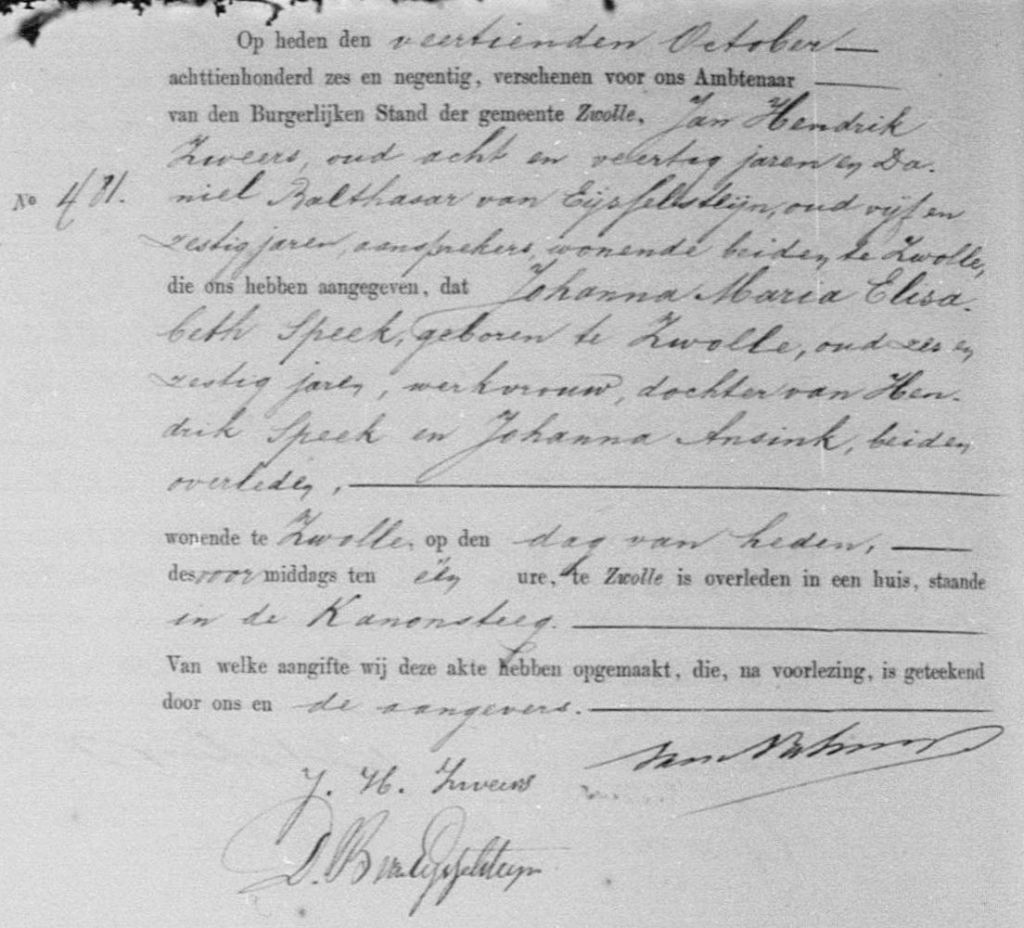 Op heden den veertienden October
achttienhonderd zes en negentig, verschenen voor ons Ambtenaar
van den Burgerlijken Stand der gemeente Zwolle, Jan Hendrik
Zweers, oud acht en veertig jaren en Da-
No 481. niel Balthasar van Eijsselsteijn, oud vijf en
zestig jaren, aansprekers, wonende beiden te Zwolle,
die ons hebben aangegeven, dat Johanna Maria Elisa-
beth Speek, geboren te Zwolle, oud zes en
zestig jaren, werkvrouw, dochter van Hen-
drik Speek en Johanna Ansink, beiden
overleden,
wonende te Zwolle, op den dag van heden,
des voormiddags ten één ure, te Zwolle is overleden in een huis, staande
in de Kanonsteeg.
Van welke aangifte wij deze akte hebben opgemaakt, die, na voorlezing, is geteekend
door ons en de aangevers.
J. H. Zweers
D. B van Eijsselsteijn